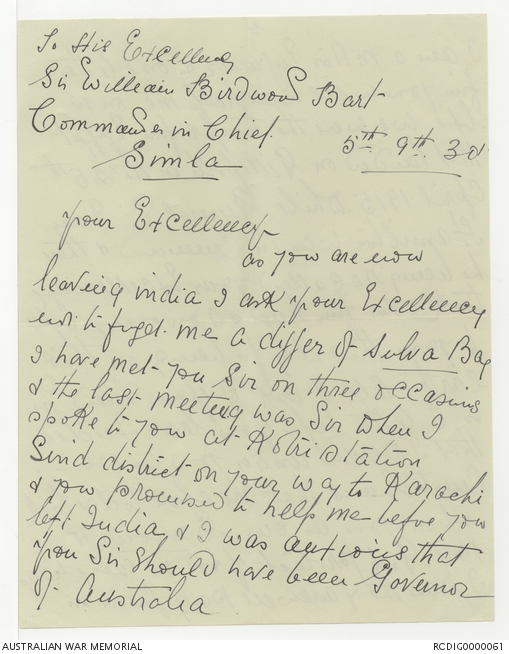 To His Excellency
Sir William Birdwood Bart
Commander in Chief.
Simla
5th 9th 30
your Excellency
as you are now
leaving india I ask your Excellency
not to forget me a digger of Sulva Bay
I have met you Sir on three occasions
& the last meeting was Sir when I
spoke to you at Kotri station
Sind district on your way to Karachi
& you promised to help me before you
left India, & I was anxious that
you Sir should have been Governor
of Australia
AUSTRALIAN WAR MEMORIAL
RCDIG0000061